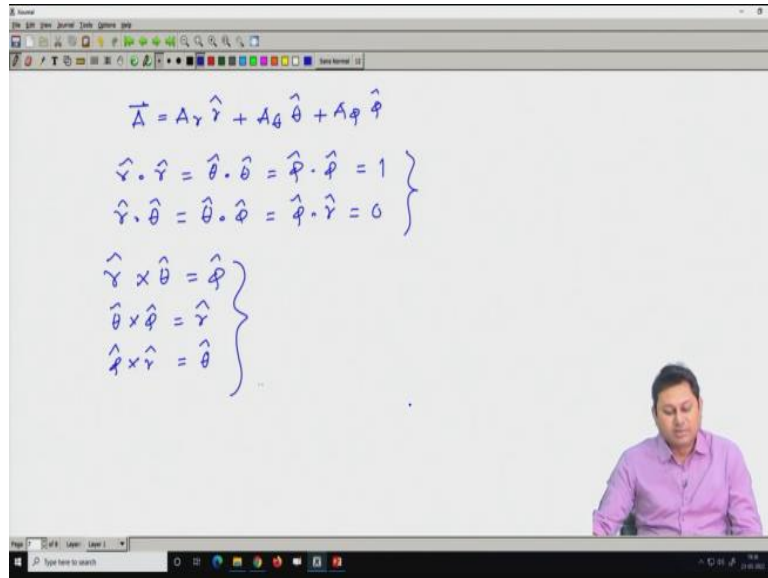 Journal
File Edit View Journal Tools Options Help
Sans Normal 12
\vec{A} = A_r \hat{r} + A_θ \hat{θ} + A_φ \hat{φ}
\hat{r} . \hat{r} = \hat{θ} . \hat{θ} = \hat{φ} . \hat{φ} = 1
\hat{r} . \hat{θ} = \hat{θ} . \hat{φ} = \hat{φ} . \hat{r} = 0
\hat{r} × \hat{θ} = \hat{φ}
\hat{θ} × \hat{φ} = \hat{r}
\hat{φ} × \hat{r} = \hat{θ}
Page 7 of 8 Layer: Layer 1
Type here to search